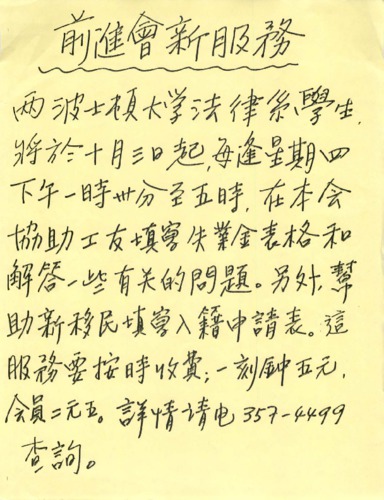 前進會新服務
两波士頓大学法律系學生,
將於十月三日起,每逢星期四
下午一時卅分至五時,在本会
協助工友填寫失業金表格和
解答一些有关的問題。另外,幫
助新移民填寫入籍申請表。這
服務要按時收費;一刻鈡五元,
会員二元五。詳情请电357-4499
查詢。